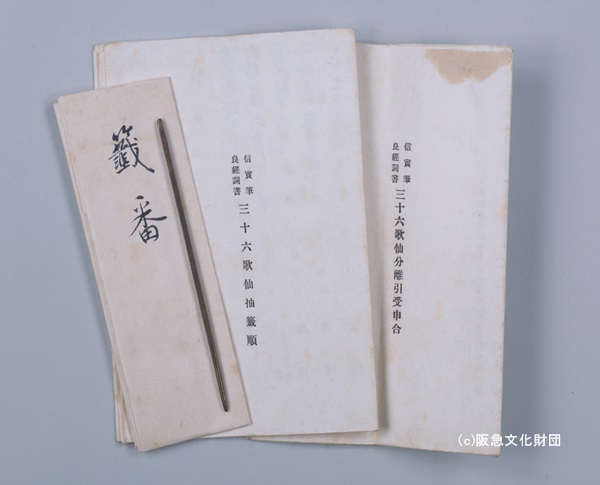 籤番
信實筆
良經詞書
三十六歌仙抽籤順
信實筆
良經詞書
三十六歌仙分離引受申合
(c)阪急文化財団